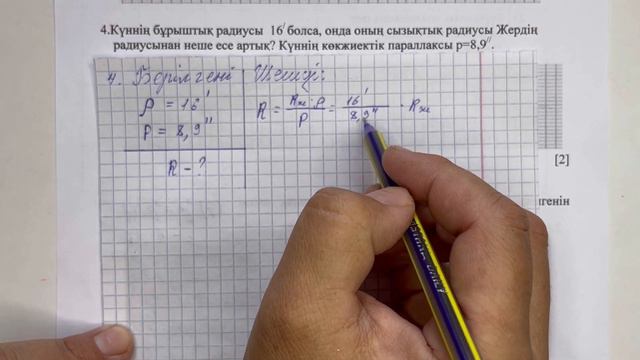 4.Күннің бұрыштық радиусы 16′ болса, онда оның сызықтық радиусы Жердің
радиусынан неше есе артық? Күннің көкжиектік параллаксы p=8,9″.
4. Берілгені Шешуі:
ρ = 16′
P = 8,9″
R = Rж·ρ / P = 16′ / 8,9″ · Rж
R - ?
[2]